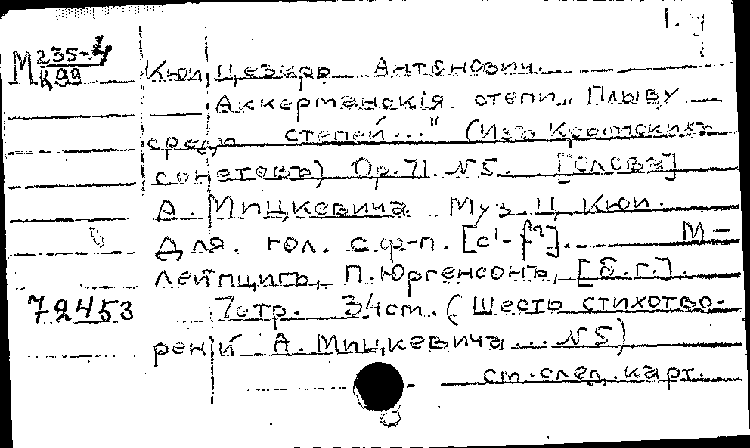 М 235-4
К99
Кюи, Цезарь Антонович.
Аккерманскія степи „Плыву
средь степей..." (Изъ Крымскихъ
сонетовъ) Ор. 71. №5. [Слова]
А. Мицкевича Муз. Ц. Кюи.
Для гол. с ф-п. [c¹-f²]. М –
Лейпцигъ, П. Юргенсонъ, [б.г.].
72453
7 стр. 34 см. (Шесть стихотво-
реній А. Мицкевича... №5)
см. след. карт.